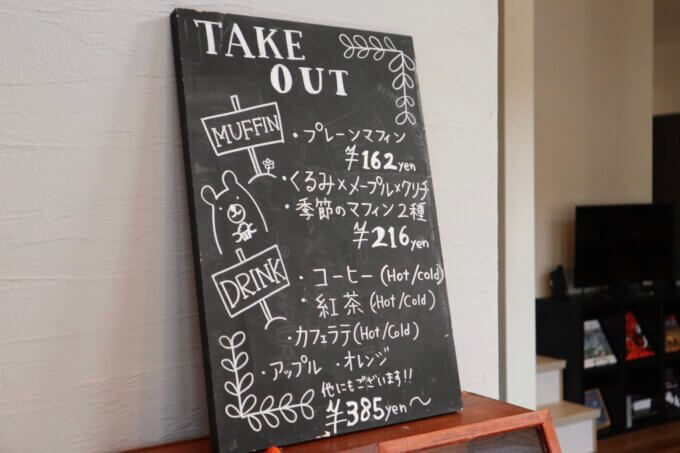 TAKE
OUT
MUFFIN
・プレーンマフィン
¥162yen
・くるみ×メープル×クリチ
・季節のマフィン2種
¥216yen
DRINK
・コーヒー(Hot/cold)
・紅茶(Hot/Cold)
・カフェラテ(Hot/Cold)
・アップル ・オレンジ
他にもございます!!
¥385yen〜